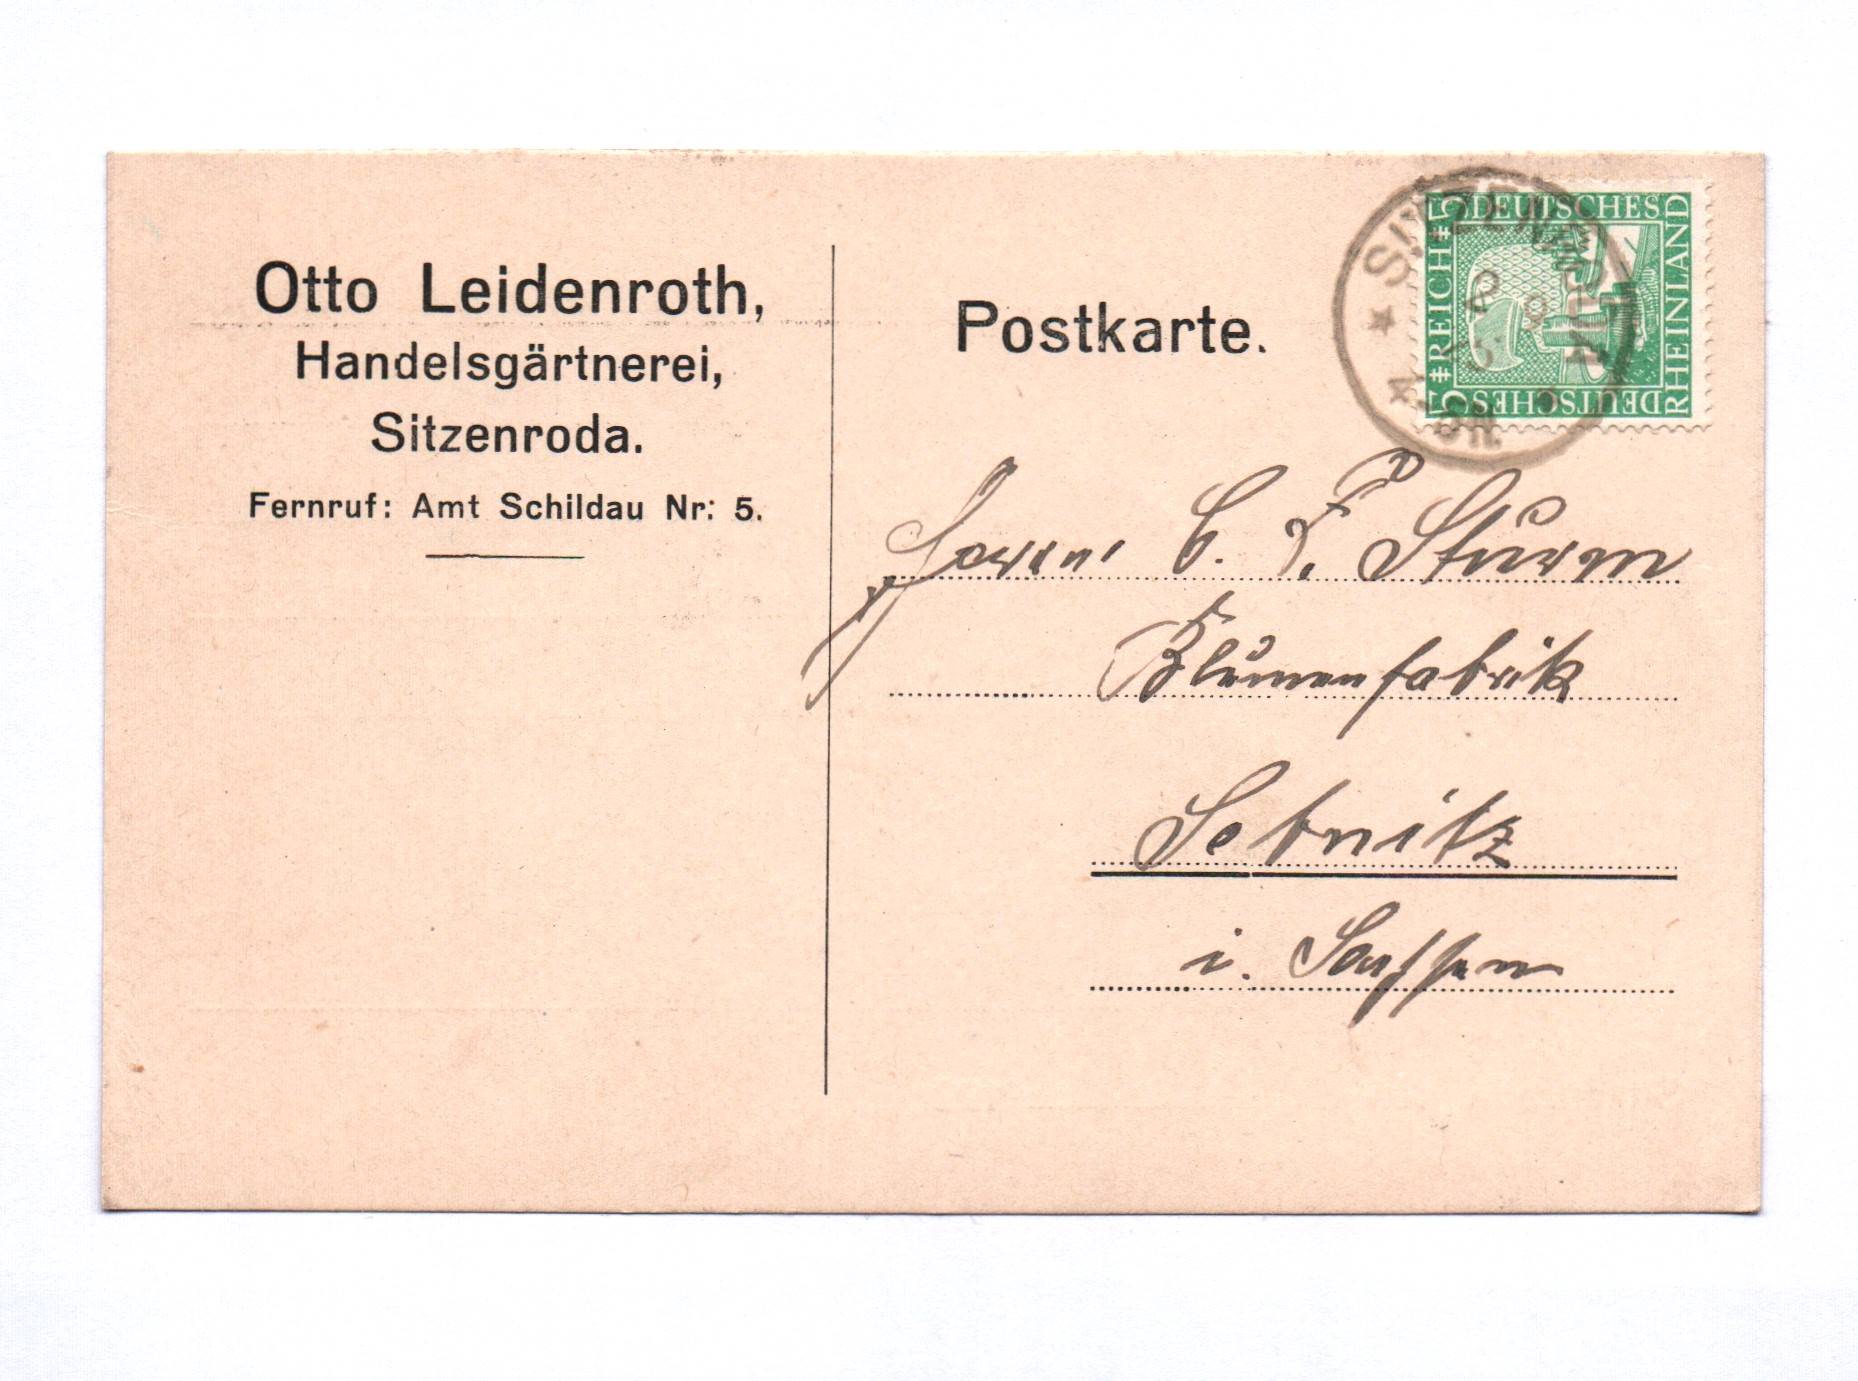 Otto Leidenroth,
Handelsgärtnerei,
Sitzenroda.
Fernruf: Amt Schildau Nr: 5.
Postkarte.
SITZENRODA
5 DEUTSCHES
REICH
RHEINLAND
5 DEUTSCHES
Herrn C. F. Sturm
Blumenfabrik
Sebnitz
i. Sachsen